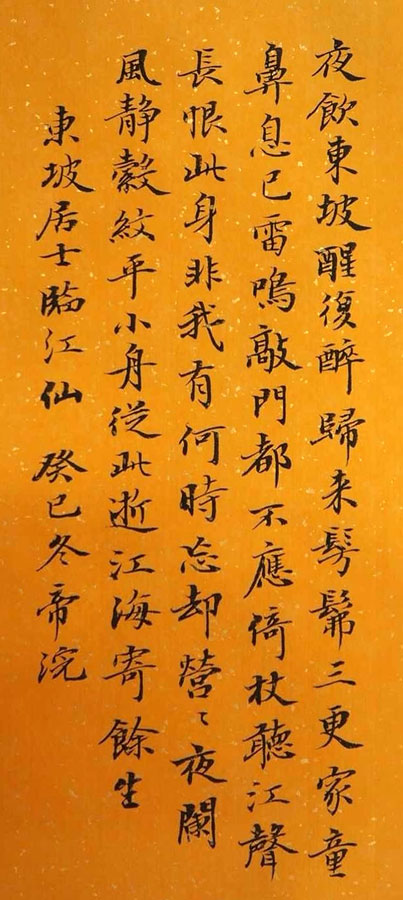 夜飲東坡醒復醉歸来髣髴三更家童
鼻息已雷鳴敲門都不應倚杖聽江聲
長恨此身非我有何時忘却營〻夜闌
風静縠紋平小舟從此逝江海寄餘生
東坡居士臨江仙 癸巳冬帝浣